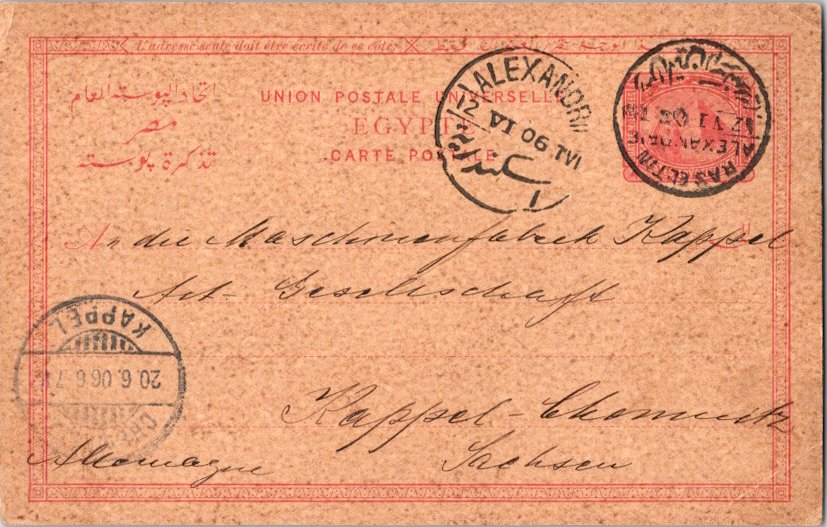 L'adresse seule doit être écrite de ce côté.
اتحاد البوستة العام
مصر
تذكرة بوستة
UNION POSTALE UNIVERSELLE
EGYPTE
CARTE POSTALE
ALEXANDRI
12 VI 06 TVI
RAS EL TIN
ALEXANDRIE
An die Maschinenfabrik Kappel
Act- Gesellschaft
KAPPEL
20.6.06. 6-7
Kappel-Chemnitz
Allemagne
Sachsen